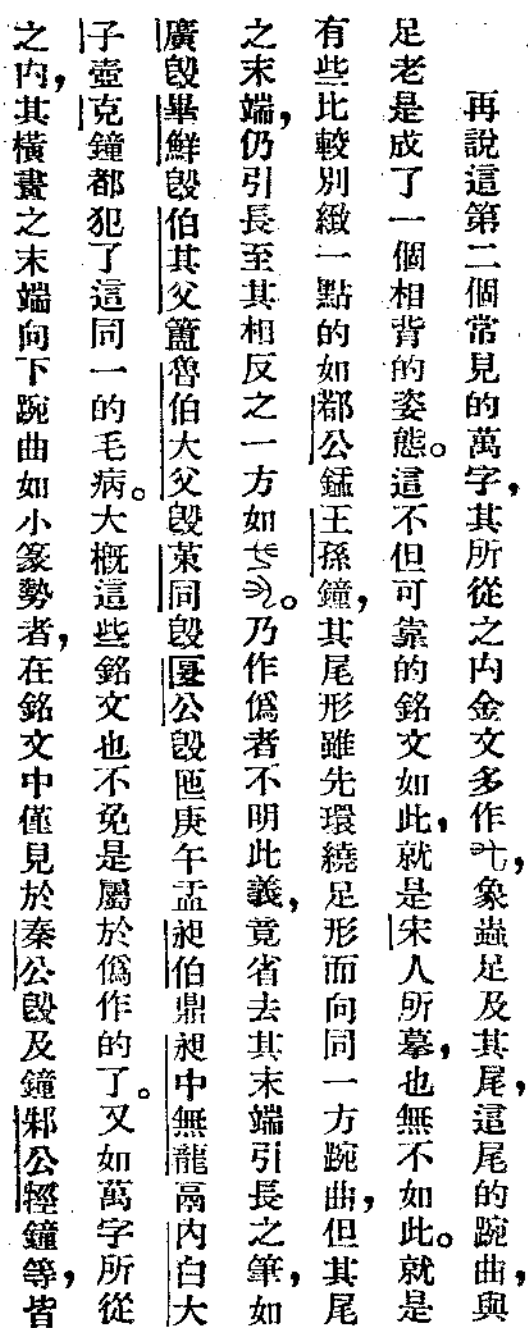 再說這第二個常見的萬字，其所從之禸金文多作，象蟲足及其尾，這尾的踠曲，與
足老是成了一個相背的姿態。這不但可靠的銘文如此，就是宋人所摹，也無不如此。就是
有些比較別緻一點的如鄀公鋀王孫鐘，其尾形雖先環繞足形而向同一方踠曲，但其尾
之末端，仍引長至其相反之一方如。乃作僞者不明此義，竟省去其末端引長之筆，如
廣𣪘畢鮮𣪘伯其父簠魯伯大父𣪘萊同𣪘匽公𣪘匜庚午盂昶伯鼎昶中無龍鬲内白大
子壺克鐘都犯了這同一的毛病。大概這些銘文也不免是屬於僞作的了。又如萬字所從
之禸，其橫畫之末端向下踠曲如小篆勢者，在銘文中僅見於秦公𣪘及鐘邾公牼鐘等，皆